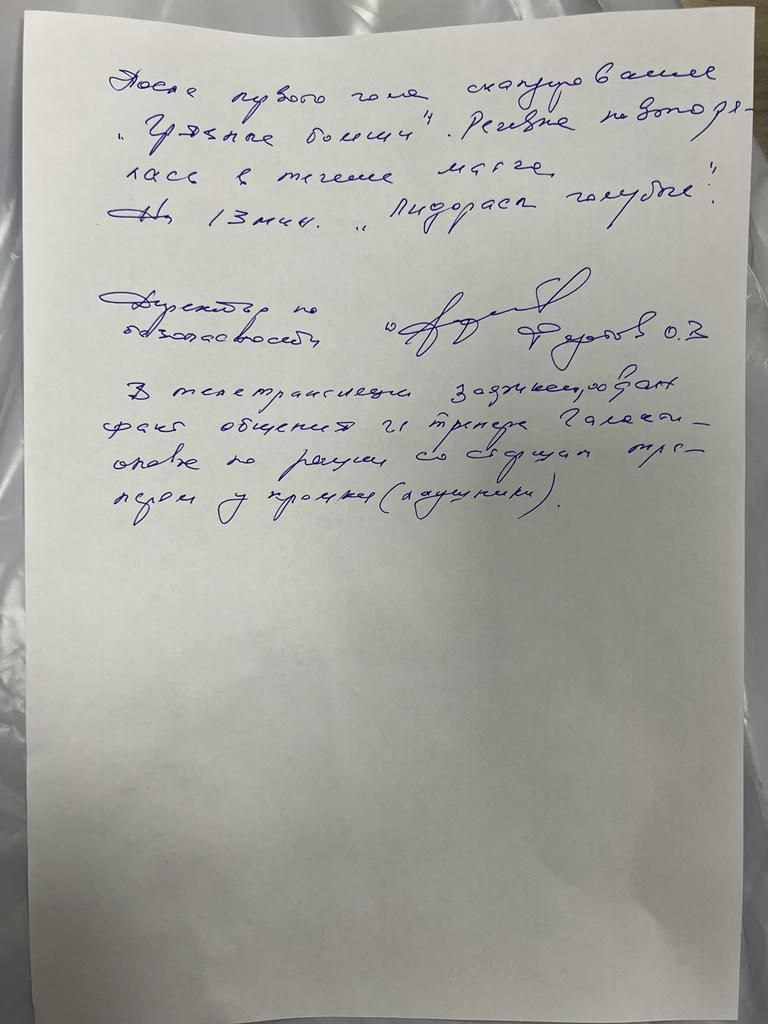 После первого гола скандирование
"Грязные бомжи". Речевка повторя-
лась в течение матча
На 13 мин. "Пидорасы голубые".
Директор по
безопасности О.В
В телетрансляции зафиксирован
факт общения гл тренера Галакти-
онова по рации со старшим тре-
нером у кромки (наушники).